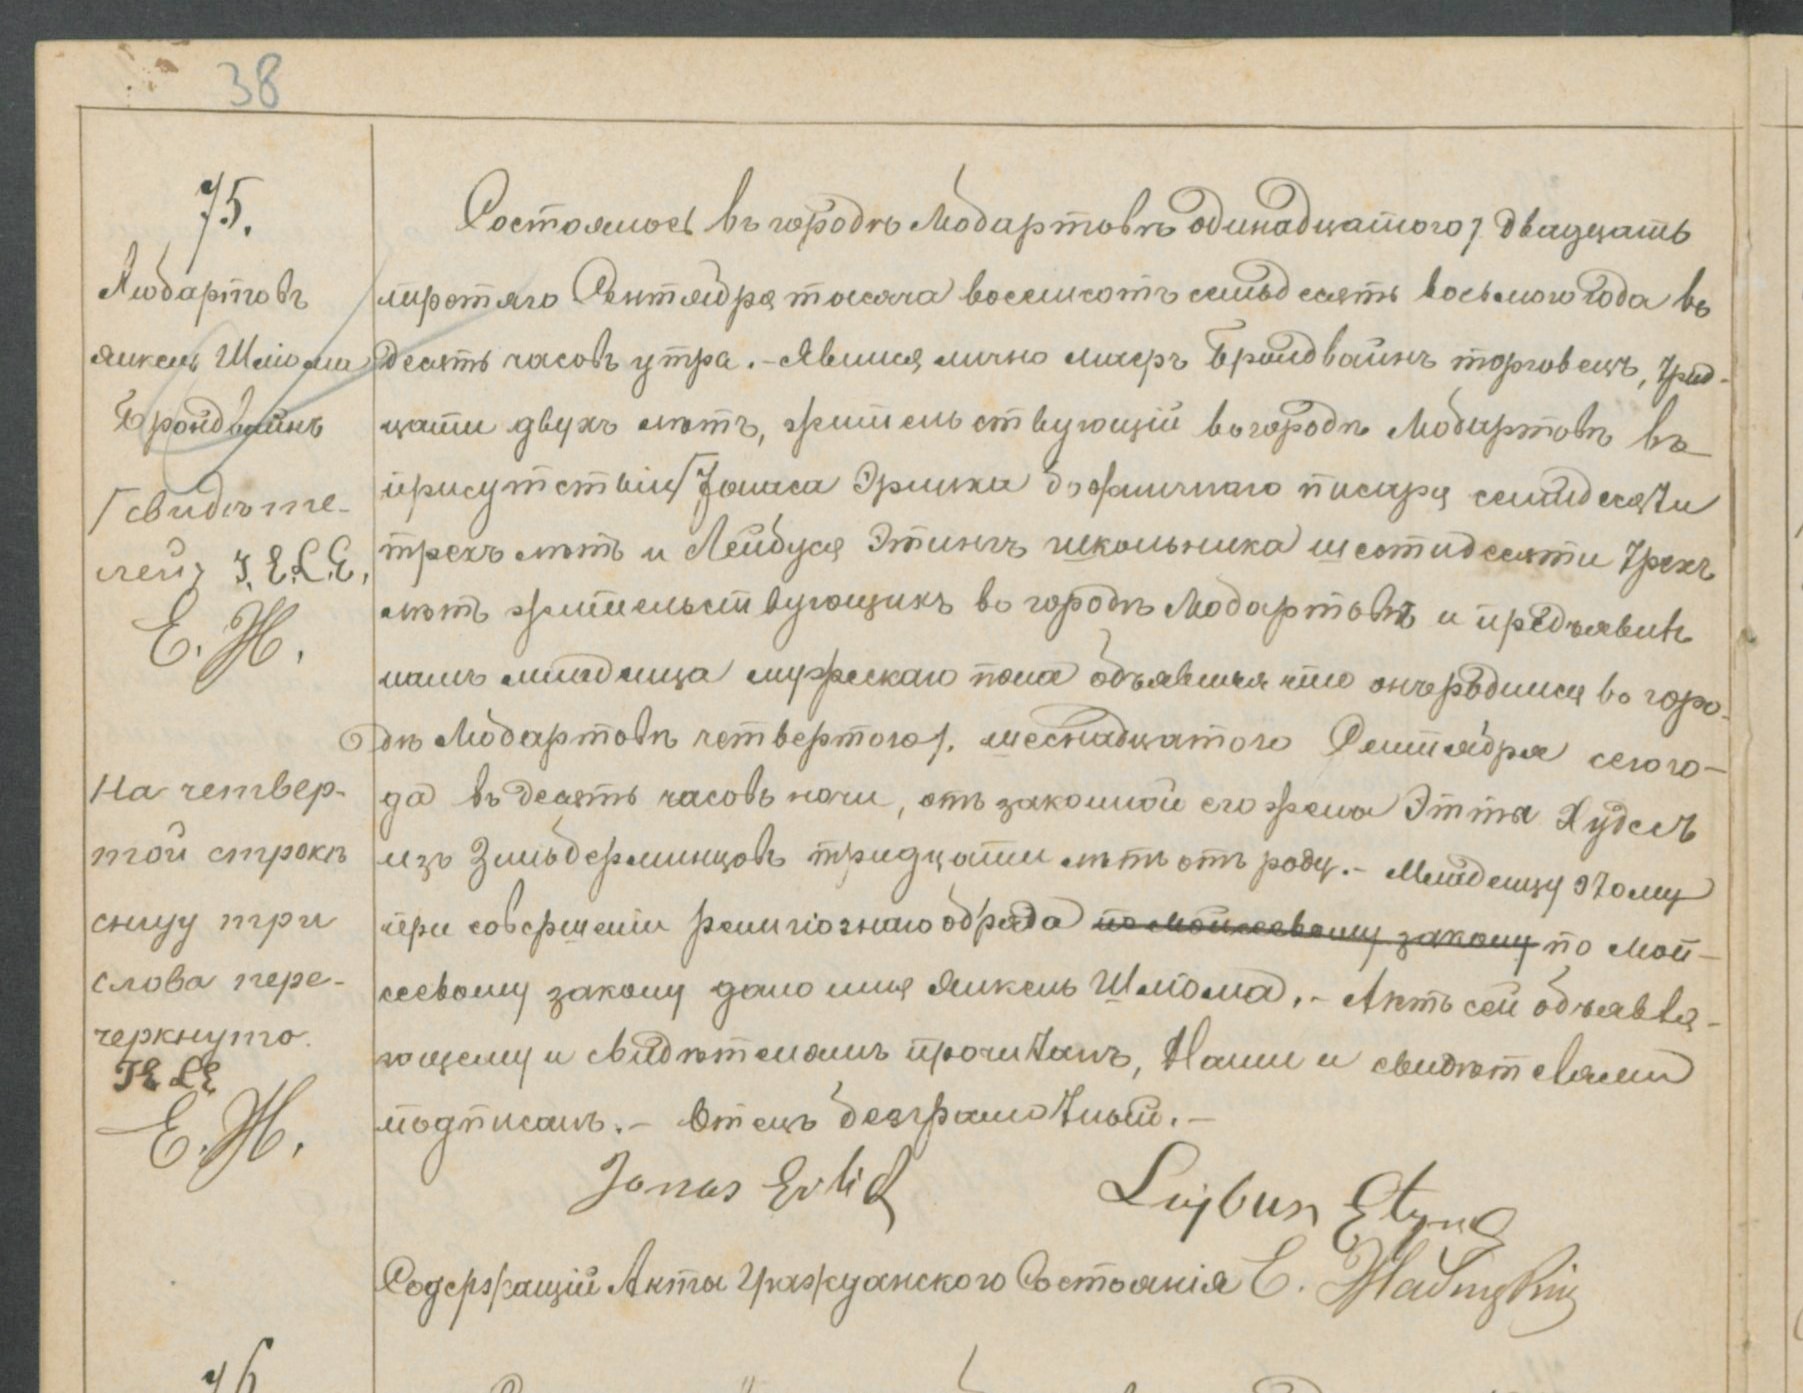 38
75.
Любартовъ
Янкель Шліома
Бройдвайнъ
Г свидѣте-
лей J. E. L. E.
Е. Ж.
На четвер-
той строкѣ
снизу три
слова пере-
черкнуто.
JE LE
Е. Ж.
Состоялось въ городѣ Любартовѣ одинадцатого / двадцать
третяго Сентября тысяча восемсотъ семьдесять восьмого года въ
десять часовъ утра. - Явился лично Маеръ Бройдвайнъ торговецъ, трид-
цати двухъ лѣтъ, жительствующій въ городѣ Любартовѣ въ
присутствіи Г Іонаса Эрлиха божничнаго писаря семидесяти
трехъ лѣтъ и Лейбуся Этингъ школьника шестидесяти трехъ
лѣтъ жительствующихъ въ городѣ Любартовѣ и предъявил
намъ младенца мужескаго пола объявляя что онъ родился въ горо-
дѣ Любартовѣ четвертого /. шеснадцатого Сентября сего го-
да въ десять часовъ ночи, отъ законной его жены Этты Худесъ
изъ Зильберминцовъ тридцати лѣтъ отъ роду. - Младенцу этому
при совершеніи религіознаго обряда по Мойсеевому закону по Мой-
сеевому закону дано имя Янкель Шліома. - Актъ сей объявля-
ющему и свидѣтелямъ прочитанъ, Нами и свидѣтелями
подписанъ. - Отецъ безграмотный. -
Jonas Erlich Lejbus Etyng
Содержащій Акты Гражданского Состоянія Е.
76